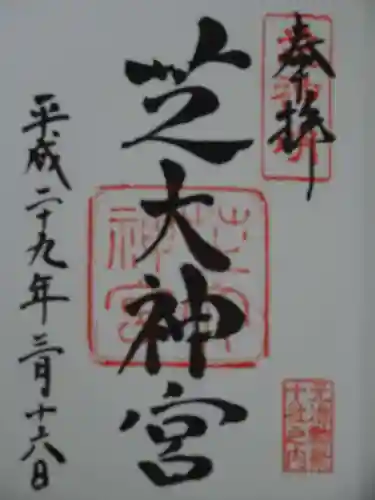 奉拝
芝大神宮
平成二十九年三月十六日